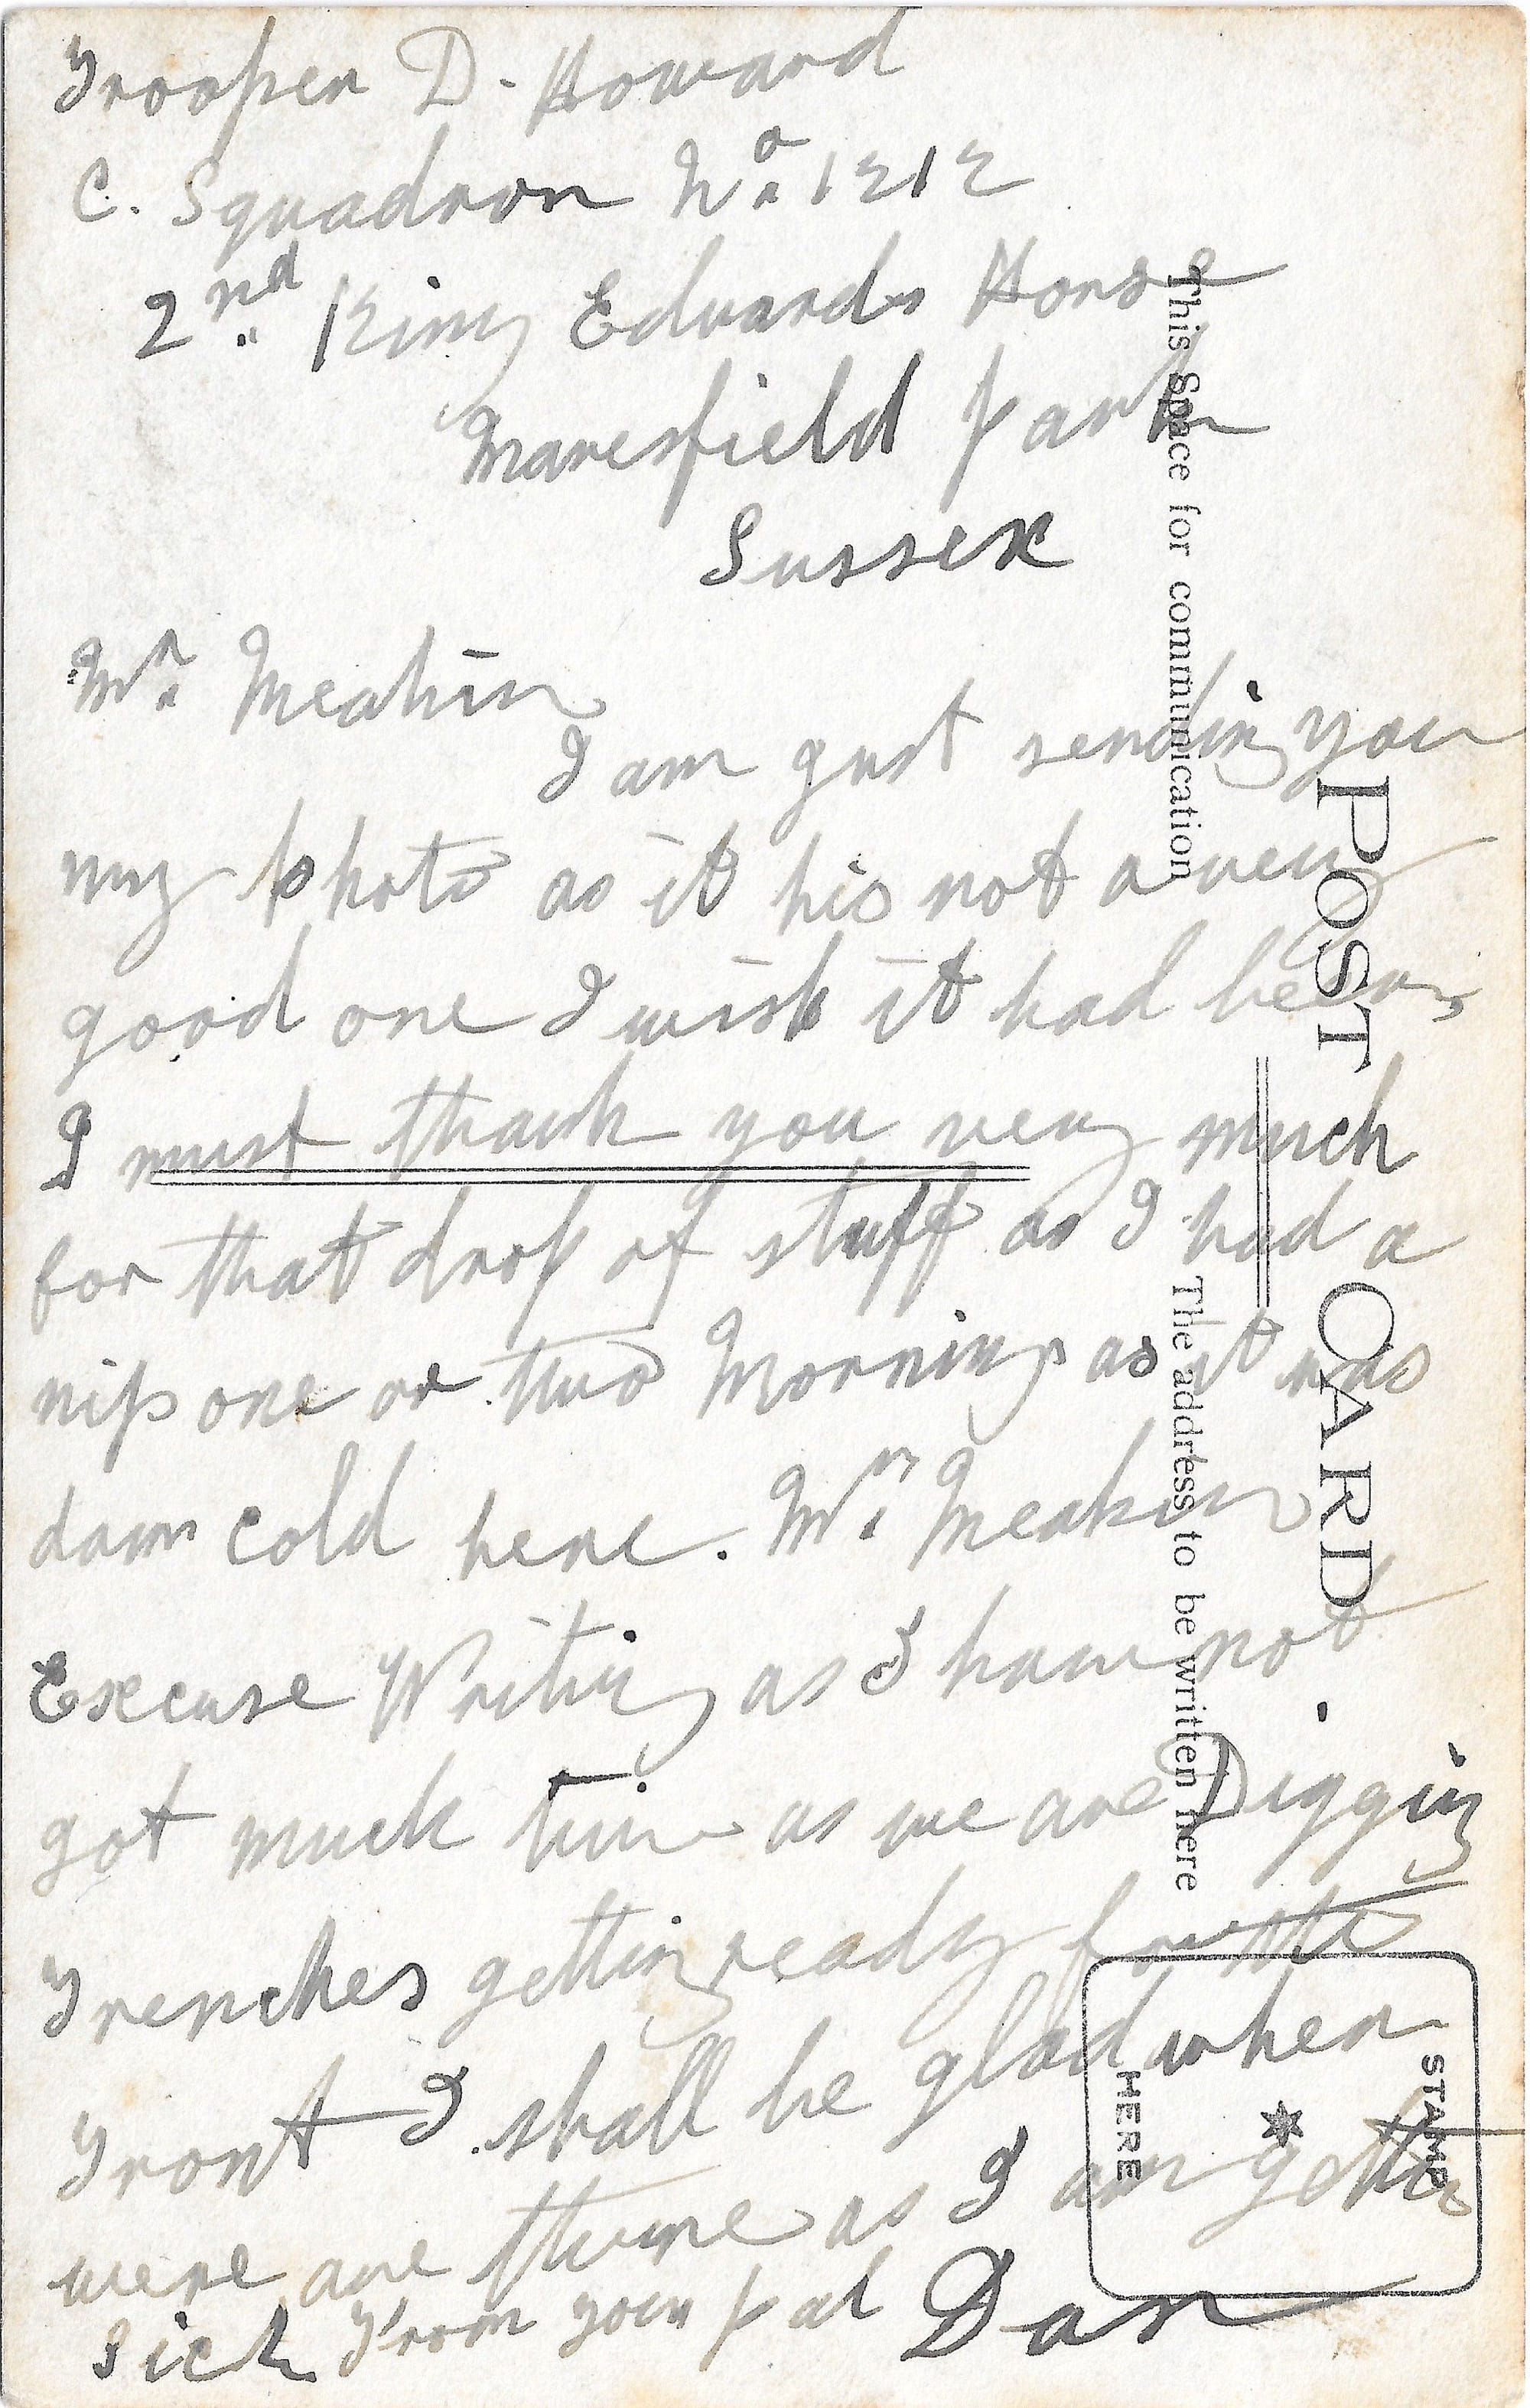 Trooper D. Howard
C. Squadron No. 1212
2nd King Edwards Horse
Maresfield Park
Sussex
Mr. Meakin
I am gust sending you
my photo as it his not a very
good one I wish it had
I must thank you very much
for that drop of stuff as I had a
nip one or two Mornings as it was
dam cold here. Mr. Meakin
Excuse Writing as I have not
got much time as we are Digging
Trenches getting ready for the
Front I shall be glad when
were are there as I am getting
sick From your pal Dan
This Space for communication
The address to be written here
POST CARD
STAMP
HERE